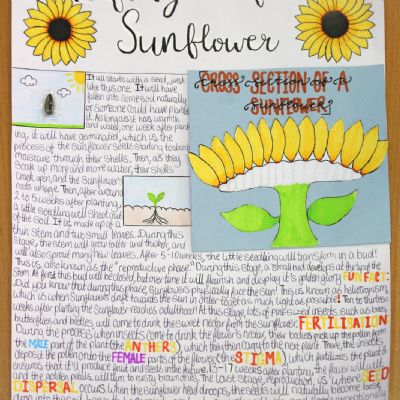 Sunflower
CROSS SECTION OF A
SUNFLOWER
It all starts with a seed, just
like this one. It will have
fallen into some soil naturally
or someone could have planted
it. As long as it has warmth
and water, one week after plant-
ing, it will have germinated, which is the
process of the sunflower seeds starting to absorb
moisture through their shells. Then, as they
soak up more and more water, their shells
crack open, and the sunflower
roots emerge. Then, after around
2 to 3 weeks after planting,
a little seedling will shoot out
of the soil. It is made up of a
thin stem and two small leaves. During this
stage, the stem will grow taller and thicker, and
will also sprout many new leaves. After 5-10 weeks, the little seedling will transform in a bud!
This is also known as the "reproductive phase." During this stage, a small bud develops at the tip of the
stem. At first this bud will be closed, but over time it will flourish and display it's golden glory. FUN FACT:
Did you know that during this phase, sunflowers physically face the sun! This is known as heliotropism,
which is when sunflowers drift towards the sun in order to get as much light as possible! Ten to thirteen
weeks after planting the sunflower reaches adulthood! At this stage, lots of pollinated insects, such as bees,
butterflies and beetles, will come to drink the sweet nectar from the sunflower. FERTILISATION
During the process, when insects come to drink the flower's nectar, their bodies pick up the pollen from
the MALE part of the plant (the ANTHERS) which they carry to the next plant. There, the insects
deposit the pollen onto the FEMALE parts of the flower (the STIGMA) which fertilizes the plant &
ensures that it'll produce fruit and seeds in the future. 13-17 weeks after planting, the flower will wilt
and the golden petals will turn to rusty brown ones. The last stage, reproduction, is where SEED
DISPERSAL occurs when the sunflower head droops, the seeds will naturally become loose,